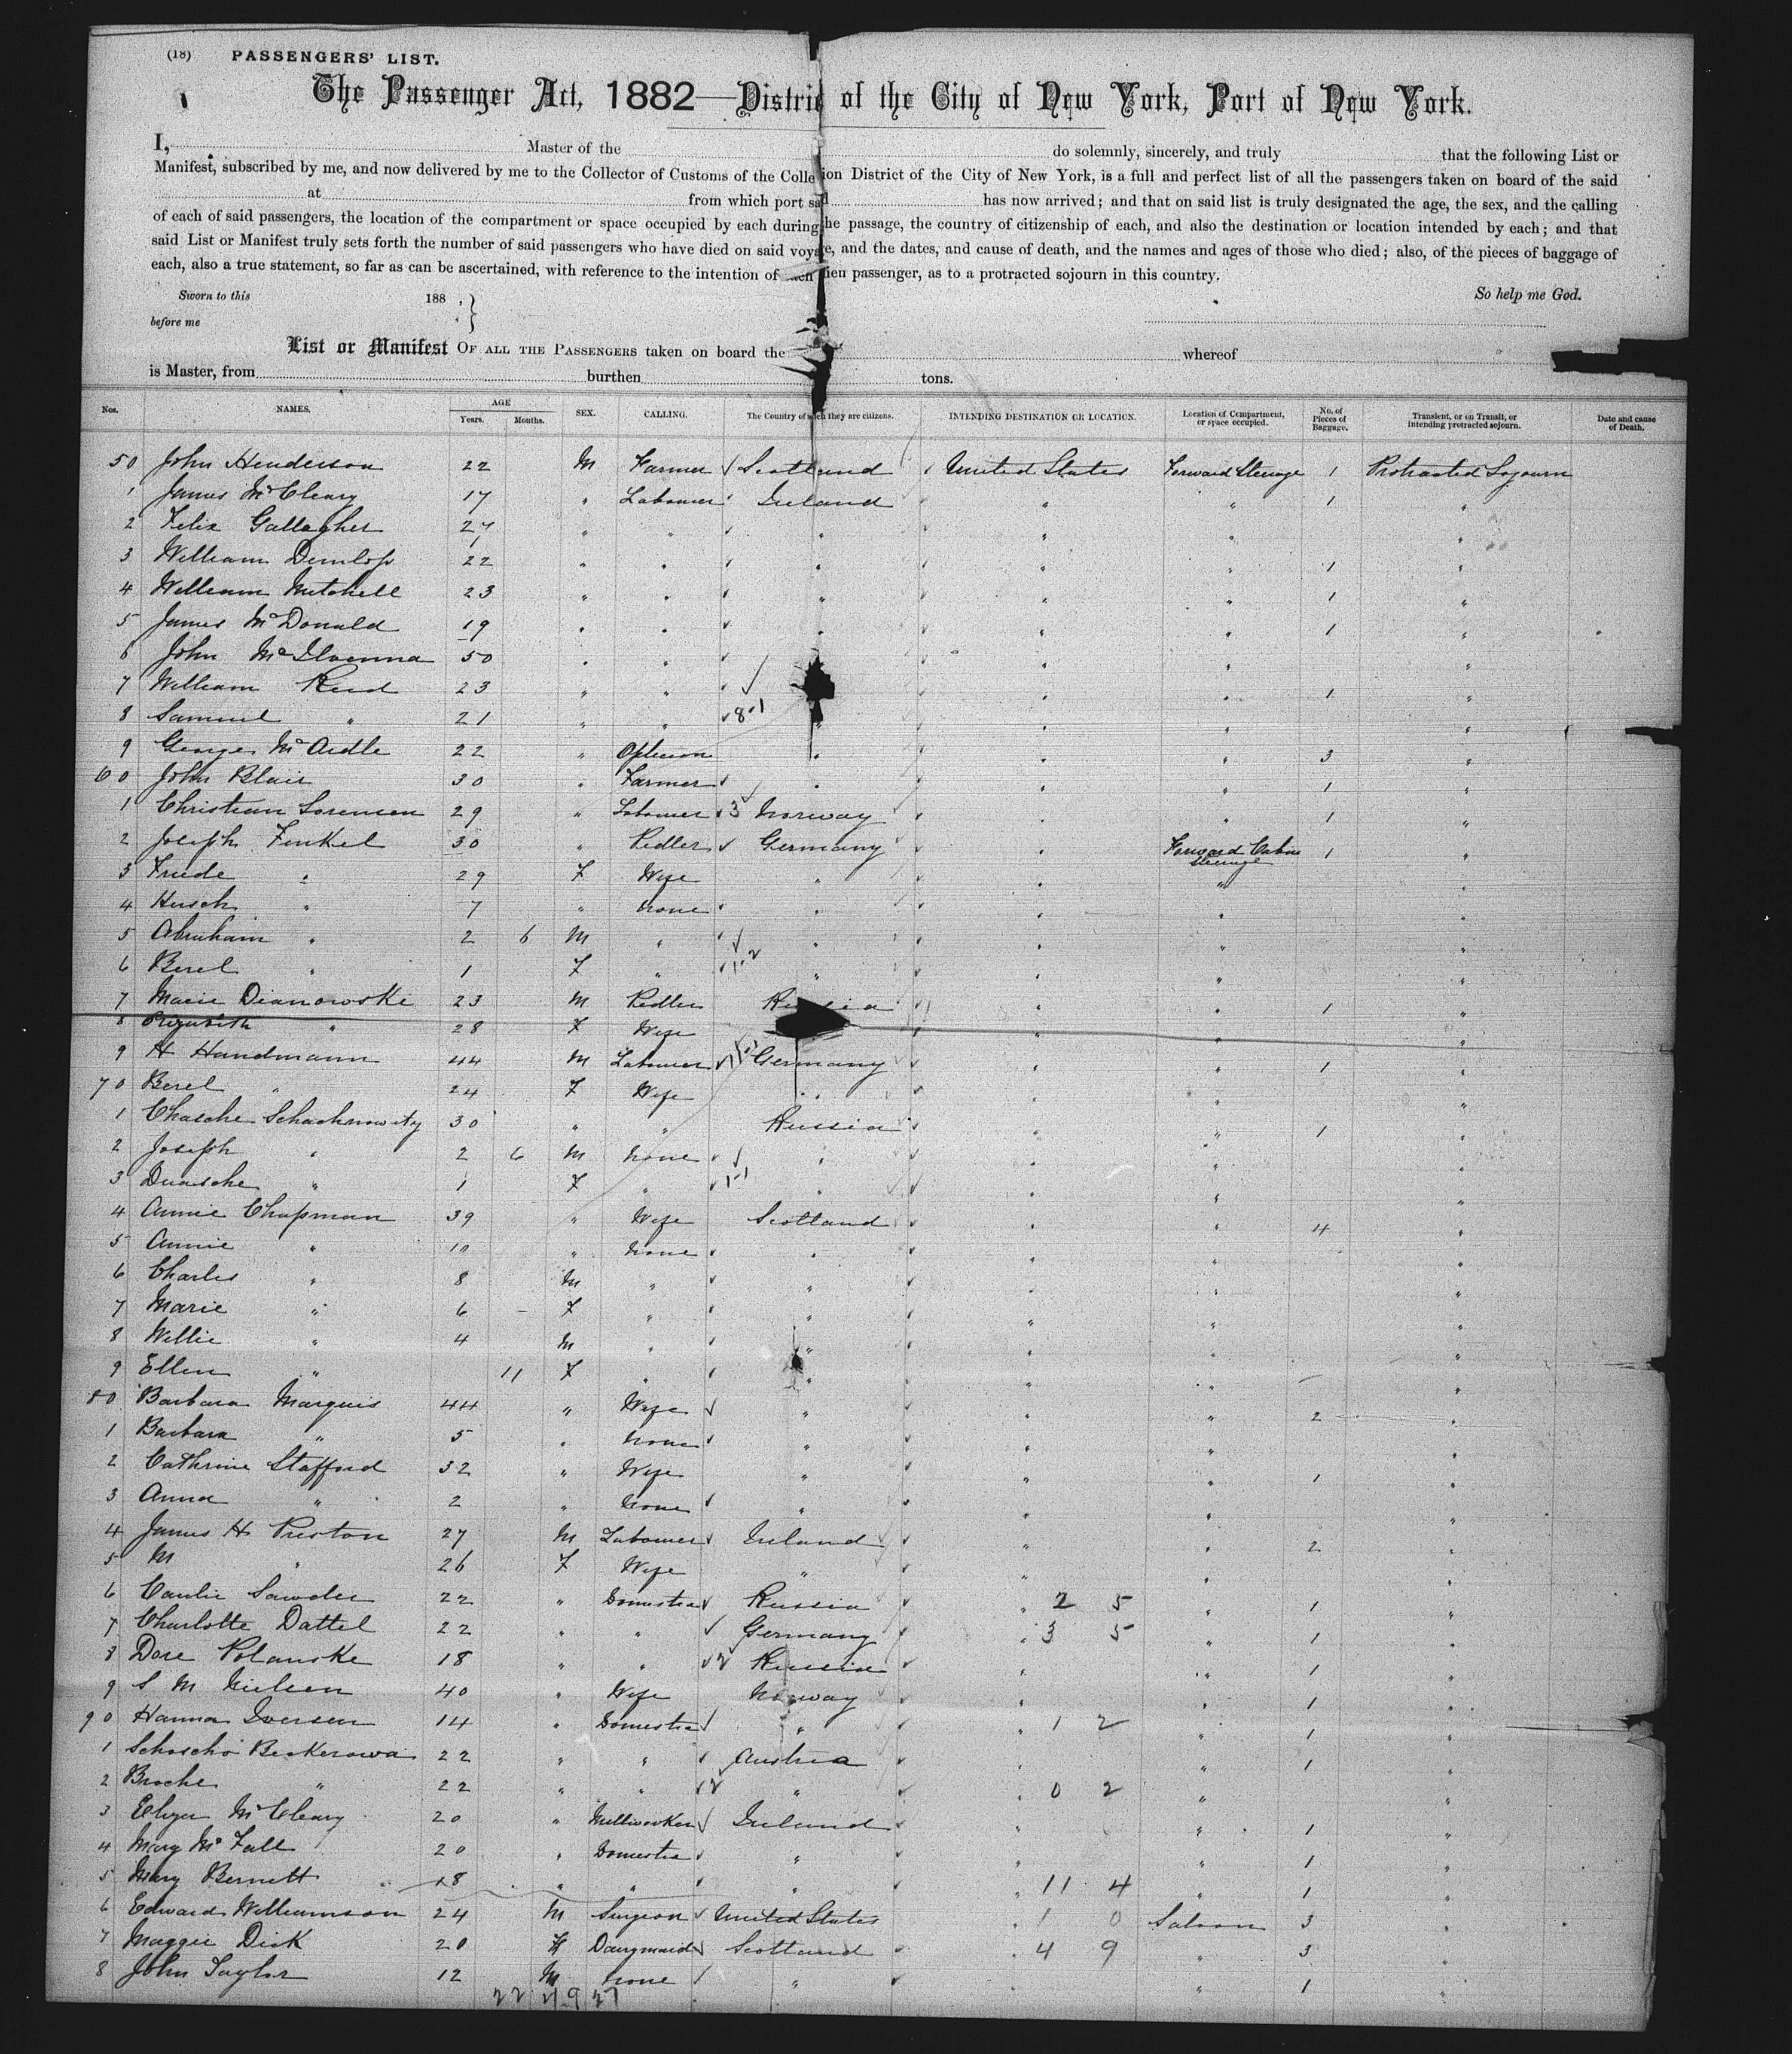 (18) PASSENGERS' LIST.
The Passenger Act, 1882—District of the City of New York, Port of New York.
I, Master of the do solemnly, sincerely, and truly that the following List or
Manifest, subscribed by me, and now delivered by me to the Collector of Customs of the Colle ion District of the City of New York, is a full and perfect list of all the passengers taken on board of the said
at from which port said has now arrived; and that on said list is truly designated the age, the sex, and the calling
of each of said passengers, the location of the compartment or space occupied by each during he passage, the country of citizenship of each, and also the destination or location intended by each; and that
said List or Manifest truly sets forth the number of said passengers who have died on said voyage, and the dates, and cause of death, and the names and ages of those who died; also, of the pieces of baggage of
each, also a true statement, so far as can be ascertained, with reference to the intention of each lien passenger, as to a protracted sojourn in this country.
Sworn to this 188 , } So help me God.
before me
List or Manifest OF ALL THE PASSENGERS taken on board the whereof
is Master, from burthen tons.
Nos. NAMES. AGE Years. Months. SEX. CALLING. The Country of which they are citizens. INTENDING DESTINATION OR LOCATION. Location of Compartment, or space occupied. No. of Pieces of Baggage. Transient, or on Transit, or intending protracted sojourn. Date and cause of Death.
50 John Henderson 22 M Farmer Scotland United States Forward Steerage 1 Protracted Sojourn
1 James McCleary 17 " Labourer Ireland " " 1 "
2 Felix Gallagher 27 " " " " " "
3 William Dunlop 22 " " " " " 1 "
4 William Mitchell 23 " " " " " 1 "
5 James McDonald 19 " " " " " 1 "
6 John McIlvenna 50 " " " " " "
7 William Reid 23 " " " " 1 "
8 Samuel " 21 " " 8-1 " " " "
9 George McArdle 22 " " " " 3 "
60 John Blair 30 " Farmer " " " 1 "
1 Christian Sorensen 29 " Labourer 3 Norway " " 1 "
2 Joseph Finkel 30 " Pedler Germany " Forward Cabin Steerage 1 "
3 Friede " 29 F Wife " " "
4 Hirsch " 7 " None " " " "
5 Abraham " 2 6 M " " " " "
6 Berel " 1 F " 1-2 " " " "
7 Marie Dianowski 23 M Pedler Russia " " 1 "
8 " 28 F Wife " " "
9 H Handmann 44 M Labourer Germany " " 1 "
70 Berel " 24 F Wife " " " "
1 Chasche Schachnowity 30 " " Russia " " 1 "
2 Joseph " 2 6 M None " " "
3 " 1 F " 1-1 " " "
4 Annie Chapman 39 " Wife Scotland " " 4 "
5 Annie " 10 " None " " " "
6 Charles " 8 M " " " " "
7 Marie " 6 F " " " " "
8 Willie " 4 M " " " " "
9 Ellen " 11 F " " " " "
80 Barbara Marquis 44 " Wife " " " 2 "
1 Barbara " 5 " None " " " "
2 Cathrine Stafford 32 " Wife " " " 1 "
3 Anna " 2 " None " " "
4 James H Preston 27 M Labourer Ireland " " 2 "
5 M " 26 F Wife " " " "
6 22 " Domestic Russia " 2 5 " 1 "
7 Charlotte Dattel 22 " " Germany " 3 5 " 1 "
8 Dore Polanske 18 " " 2 Russia " " 1 "
9 S M Nielsen 40 " Wife Norway " " 1 "
90 Hanna Iversen 14 " Domestic " " 1 2 " 1 "
1 Beckerowa 22 " " Austria " " 1 "
2 Broche " 22 " " 2 " " 0 2 " "
3 McCleary 20 " Millworker Ireland " " 1 "
4 Mary McFall 20 " Domestic " " " 1 "
5 Mary Bennett 18 " " " " 11 4 " 1 "
6 Edward Williamson 24 M Surgeon United States " 1 0 Saloon 3 "
7 Maggie Dick 20 F Dairymaid Scotland " 4 9 " 3 "
8 John Taylor 12 M None " " " 1 "
22 27